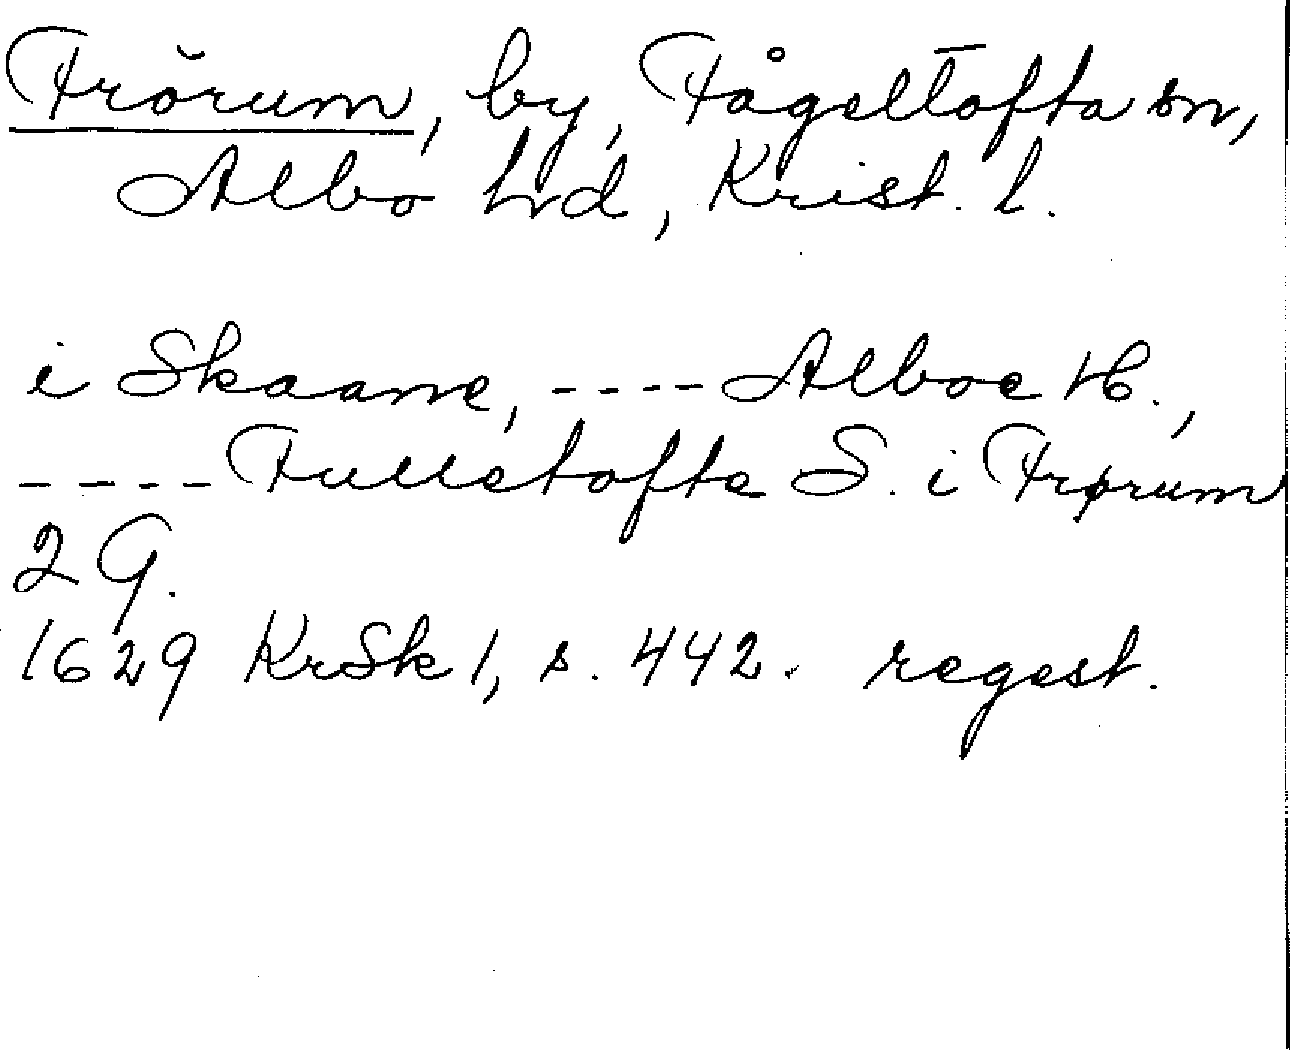 Frörum, by, Fågeltofta sn,
Albo hd, Krist. l.
i Skaane, ---- Alboe H.,
---- Fulletofte S. i Frørum
2 G.
1629 KrSk 1, s. 442. regest.